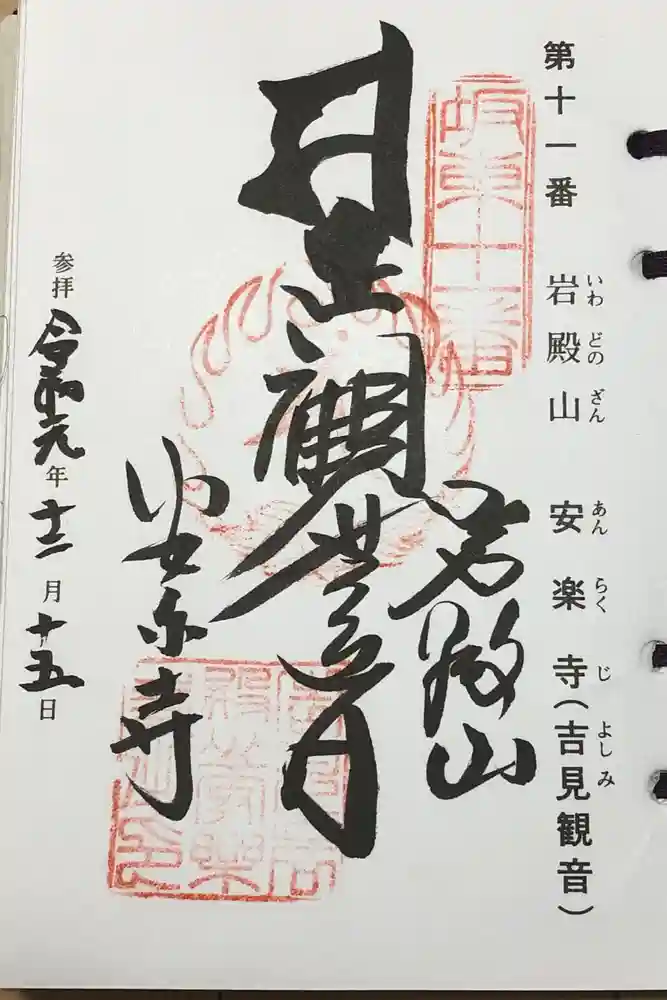 第十一番 岩殿山 安楽寺(吉見観音)
いわ どの ざん あん らく じ よし み
坂東十一番
岩殿山
聖観世音
安楽寺
参拝 令和元年十二月十五日